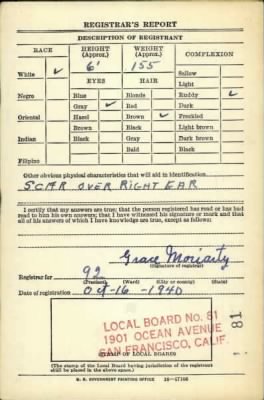 REGISTRAR'S REPORT
DESCRIPTION OF REGISTRANT
RACE HEIGHT (Approx.) WEIGHT (Approx.) COMPLEXION
6' 155
White ✓ Sallow
EYES HAIR Light
Negro Blue Blonde Ruddy ✓
Gray ✓ Red Dark
Oriental Hazel Brown ✓ Freckled
Brown Black Light brown
Indian Black Gray Dark brown
Bald Black
Filipino
Other obvious physical characteristics that will aid in identification
SCAR OVER RIGHT EAR
I certify that my answers are true; that the person registered has read or has had
read to him his own answers; that I have witnessed his signature or mark and that
all of his answers of which I have knowledge are true, except as follows:
Grace Moriarty
(Signature of registrar)
Registrar for 92
(Precinct) (Ward) (City or county) (State)
Date of registration Oct-16-1940
LOCAL BOARD No. 81
1901 OCEAN AVENUE
SAN FRANCISCO, CALIF.
81
(STAMP OF LOCAL BOARD)
(The stamp of the Local Board having jurisdiction of the registrant
shall be placed in the above space.)
U. S. GOVERNMENT PRINTING OFFICE 16-17105